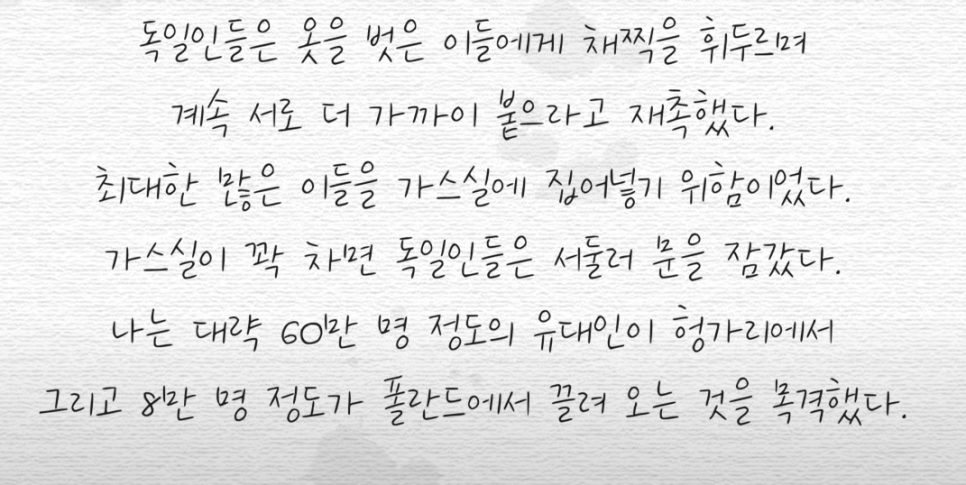 독일인들은 옷을 벗은 이들에게 채찍을 휘두르며
계속 서로 더 가까이 붙으라고 재촉했다.
최대한 많은 이들을 가스실에 집어넣기 위함이었다.
가스실이 꽉 차면 독일인들은 서둘러 문을 잠갔다.
나는 대략 60만 명 정도의 유대인이 헝가리에서
그리고 8만 명 정도가 폴란드에서 끌려 오는 것을 목격했다.